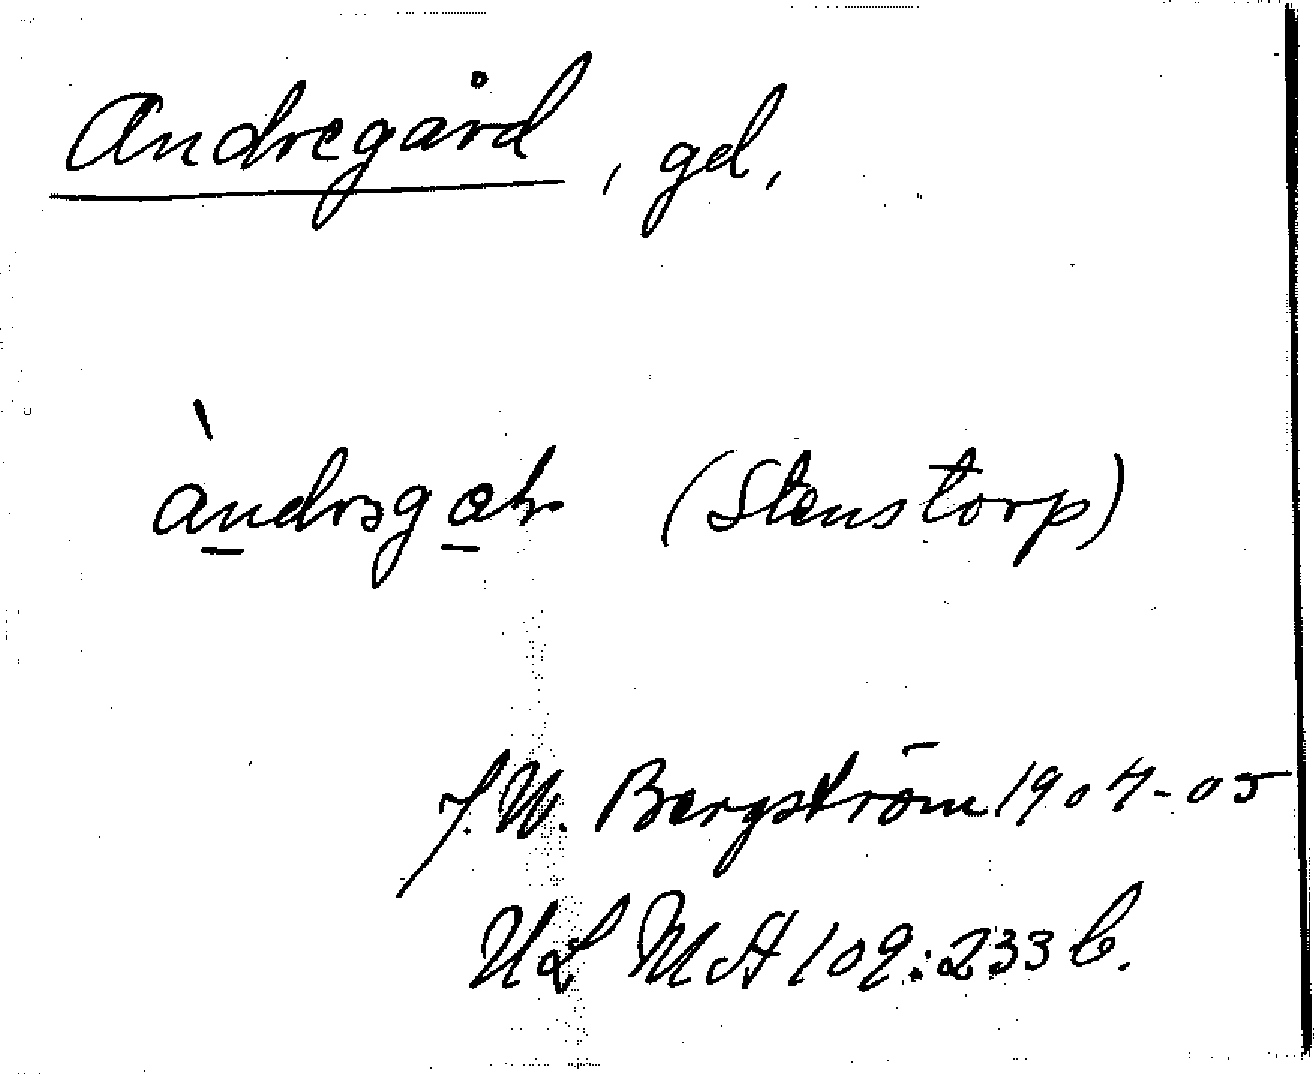 Andregård, gd,
àndrəgɑh (Stenstorp)
J.W. Bergström 1904-05
ULMA 109:233 b.